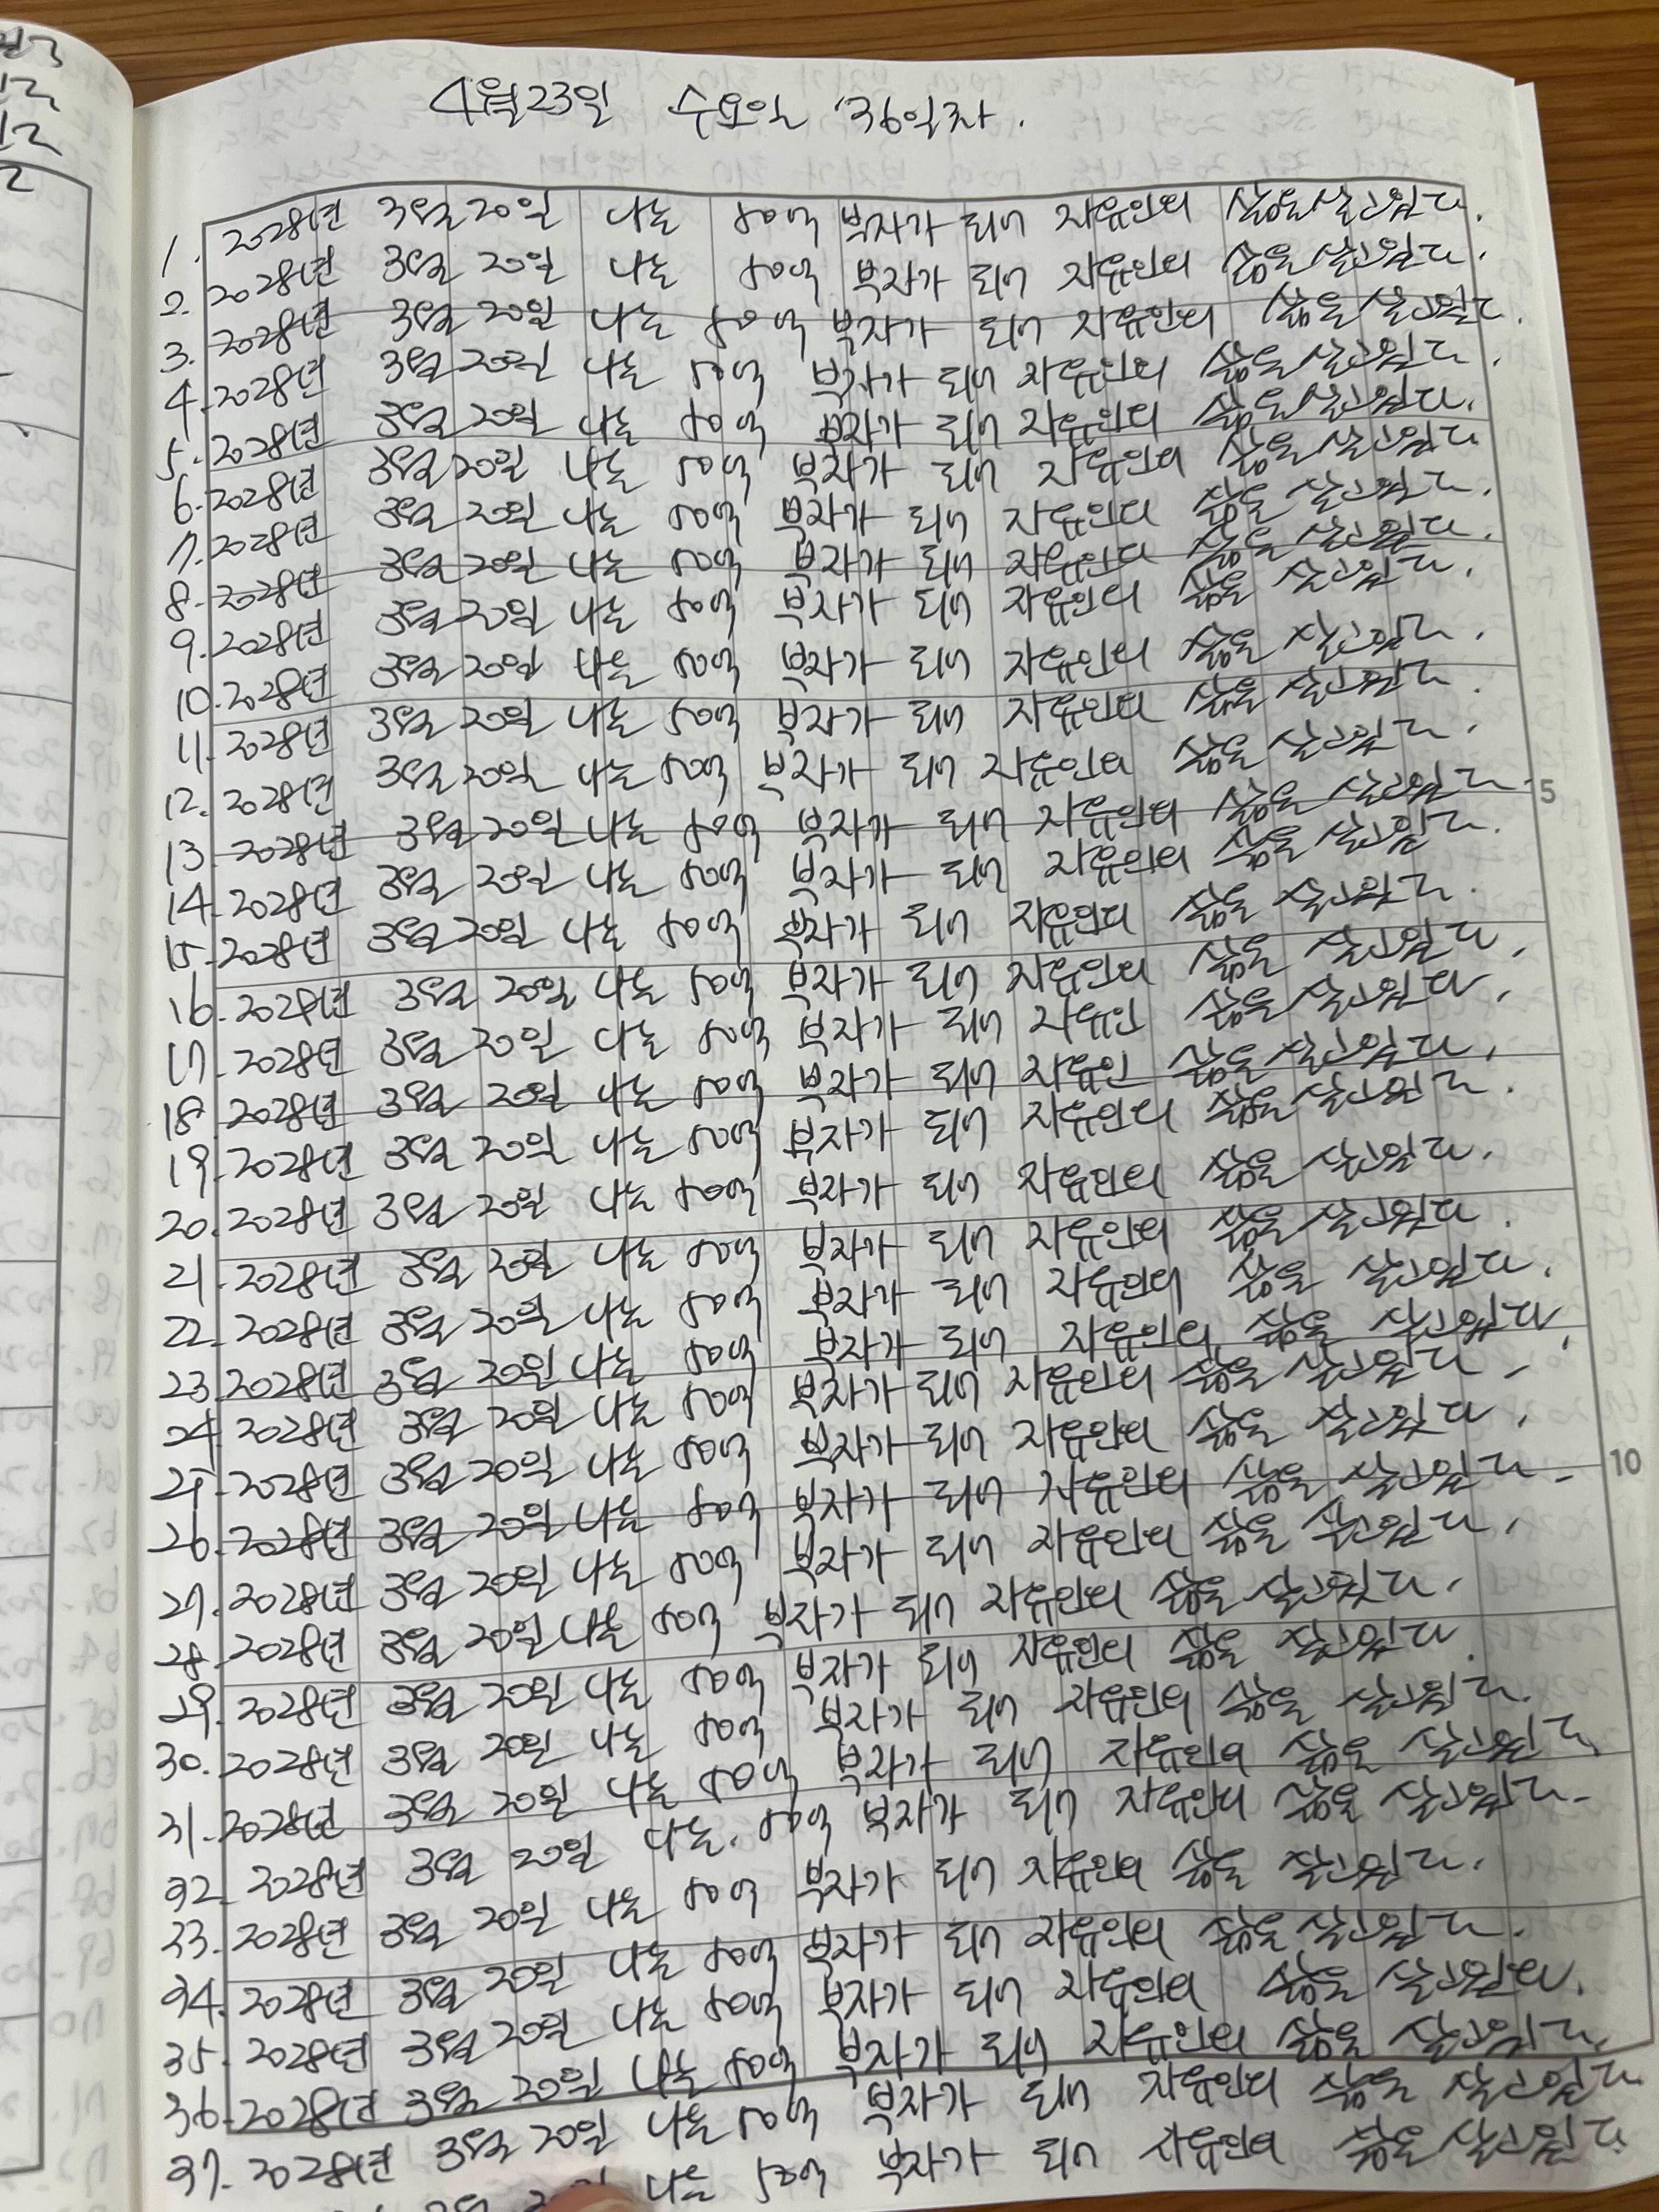 4월23일 수요일 36일차.
1. 2028년 3월 20일 나는 50억 부자가 되어 자유인의 삶을 살고있다.
2. 2028년 3월 20일 나는 50억 부자가 되어 자유인의 삶을 살고있다.
3. 2028년 3월 20일 나는 50억 부자가 되어 자유인의 삶을 살고있다.
4. 2028년 3월 20일 나는 50억 부자가 되어 자유인의 삶을 살고있다.
5. 2028년 3월 20일 나는 50억 부자가 되어 자유인의 삶을 살고있다.
6. 2028년 3월 20일 나는 50억 부자가 되어 자유인의 삶을 살고있다
7. 2028년 3월 20일 나는 50억 부자가 되어 자유인의 삶을 살고있다.
8. 2028년 3월 20일 나는 50억 부자가 되어 자유인의 삶을 살고있다.
9. 2028년 3월 20일 나는 50억 부자가 되어 자유인의 삶을 살고있다.
10. 2028년 3월 20일 나는 50억 부자가 되어 자유인의 삶을 살고있다.
11. 2028년 3월 20일 나는 50억 부자가 되어 자유인의 삶을 살고있다.
12. 2028년 3월 20일 나는 50억 부자가 되어 자유인의 삶을 살고있다.
13. 2028년 3월 20일 나는 50억 부자가 되어 자유인의 삶을 살고있다
5
14. 2028년 3월 20일 나는 50억 부자가 되어 자유인의 삶을 살고있다.
15. 2028년 3월 20일 나는 50억 부자가 되어 자유인의 삶을 살고있다.
16. 2028년 3월 20일 나는 50억 부자가 되어 자유인의 삶을 살고있다.
17. 2028년 3월 20일 나는 50억 부자가 되어 자유인 삶을 살고있다.
18. 2028년 3월 20일 나는 50억 부자가 되어 자유인 삶을 살고있다.
19. 2028년 3월 20일 나는 50억 부자가 되어 자유인의 삶을 살고있다.
20. 2028년 3월 20일 나는 50억 부자가 되어 자유인의 삶을 살고있다.
21. 2028년 3월 20일 나는 50억 부자가 되어 자유인의 삶을 살고있다.
22. 2028년 3월 20일 나는 50억 부자가 되어 자유인의 삶을 살고있다.
23. 2028년 3월 20일 나는 50억 부자가 되어 자유인의 삶을 살고있다.
24. 2028년 3월 20일 나는 50억 부자가 되어 자유인의 삶을 살고있다.
25. 2028년 3월 20일 나는 50억 부자가 되어 자유인의 삶을 살고있다.
10
26. 2028년 3월 20일 나는 50억 부자가 되어 자유인의 삶을 살고있다.
27. 2028년 3월 20일 나는 50억 부자가 되어 자유인의 삶을 살고있다.
28. 2028년 3월 20일 나는 50억 부자가 되어 자유인의 삶을 살고있다.
29. 2028년 3월 20일 나는 50억 부자가 되어 자유인의 삶을 살고있다.
30. 2028년 3월 20일 나는 50억 부자가 되어 자유인의 삶을 살고있다.
31. 2028년 3월 20일 나는 50억 부자가 되어 자유인의 삶을 살고있다.
32. 2028년 3월 20일 나는. 50억 부자가 되어 자유인의 삶을 살고있다.
33. 2028년 3월 20일 나는 50억 부자가 되어 자유인의 삶을 살고있다.
34. 2028년 3월 20일 나는 50억 부자가 되어 자유인의 삶을 살고있다.
35. 2028년 3월 20일 나는 50억 부자가 되어 자유인의 삶을 살고있다.
36. 2028년 3월 20일 나는 50억 부자가 되어 자유인의 삶을 살고있다.
37. 2028년 3월 20일 나는 50억 부자가 되어 자유인의 삶을 살고있다.
나는 50억 부자가 되어 자유인의 삶을 살고있다.